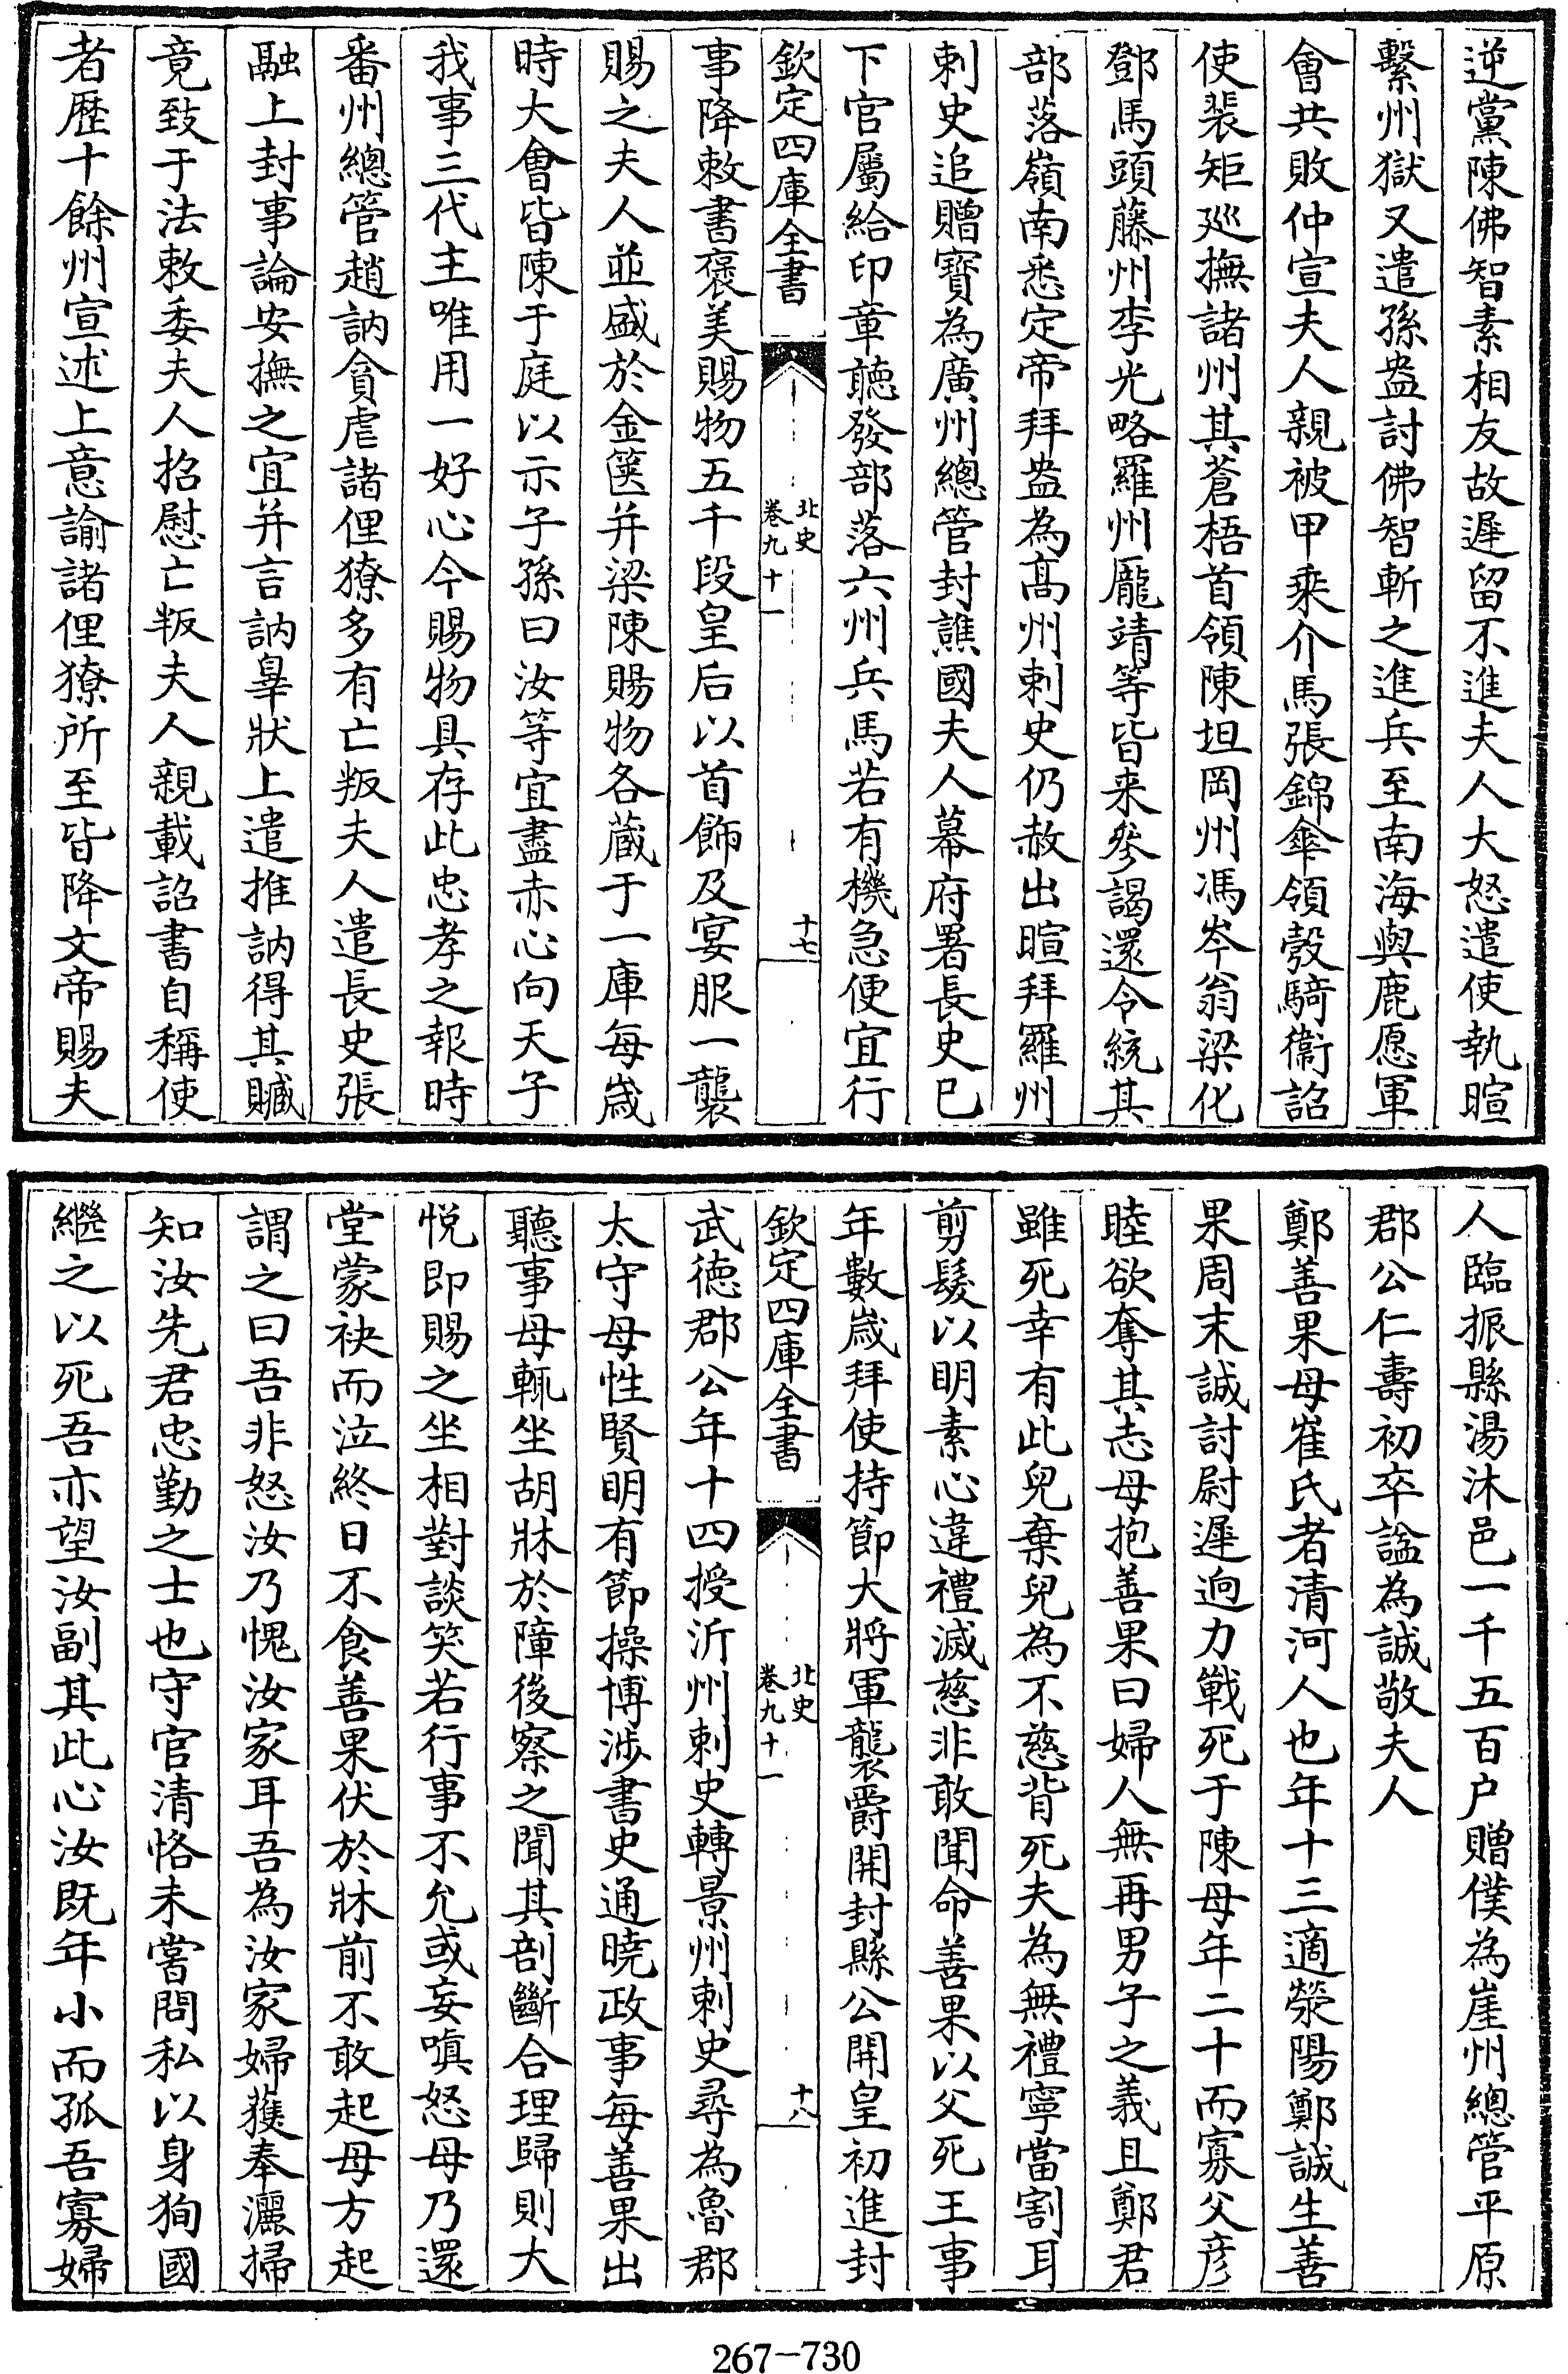 逆黨陳佛智素相友故遲留不進夫人大怒遣使執暄
繫州獄又遣孫盎討佛智斬之進兵至南海與鹿愿軍
會共敗仲宣夫人親被甲乗介馬張錦傘領彀騎衞詔
使裴矩廵撫諸州其蒼梧首領陳坦岡州馮岑翁梁化
鄧馬頭藤州李光略羅州龎靖等皆来參謁還令統其
部落嶺南悉定帝拜盎為髙州刺史仍赦出暄拜羅州
刺史追贈寳為廣州總管封譙國夫人幕府署長史已
下官屬給印章聽發部落六州兵馬若有機急便宜行
欽定四庫全書
北史
卷九十一
十七
事降敕書褒美賜物五千段皇后以首飾及宴服一襲
賜之夫人並盛於金篋并梁陳賜物各蔵于一庫每嵗
時大會皆陳于庭以示子孫曰汝等宜盡赤心向天子
我事三代主唯用一好心今賜物具存此忠孝之報時
番州總管趙訥貪虐諸俚獠多有亡叛夫人遣長史張
融上封事論安撫之宜并言訥辠狀上遣推訥得其贓
竟致于法敕委夫人招慰亡叛夫人親載詔書自稱使
者歴十餘州宣述上意諭諸俚獠所至皆降文帝賜夫
人臨振縣湯沐邑一千五百户贈僕為崖州總管平原
郡公仁壽初卒諡為誠敬夫人
鄭善果母崔氏者清河人也年十三適滎陽鄭誠生善
果周末誠討尉遲迥力戰死于陳母年二十而寡父彦
睦欲奪其志母抱善果曰婦人無再男子之義且鄭君
雖死幸有此兒棄兒為不慈背死夫為無禮寧當割耳
剪髮以明素心違禮滅慈非敢聞命善果以父死王事
年數嵗拜使持節大將軍襲爵開封縣公開皇初進封
欽定四庫全書
北史
卷九十一
十八
武徳郡公年十四授沂州刺史轉景州刺史尋為魯郡
太守母性賢明有節操博涉書史通曉政事每善果出
聽事母輒坐胡牀於障後察之聞其剖斷合理歸則大
悦即賜之坐相對談笑若行事不允或妄嗔怒母乃還
堂蒙袂而泣終日不食善果伏於牀前不敢起母方起
謂之曰吾非怒汝乃愧汝家耳吾為汝家婦獲奉灑掃
知汝先君忠勤之士也守官清恪未嘗問私以身狥國
繼之以死吾亦望汝副其此心汝既年小而孤吾寡婦
267-730